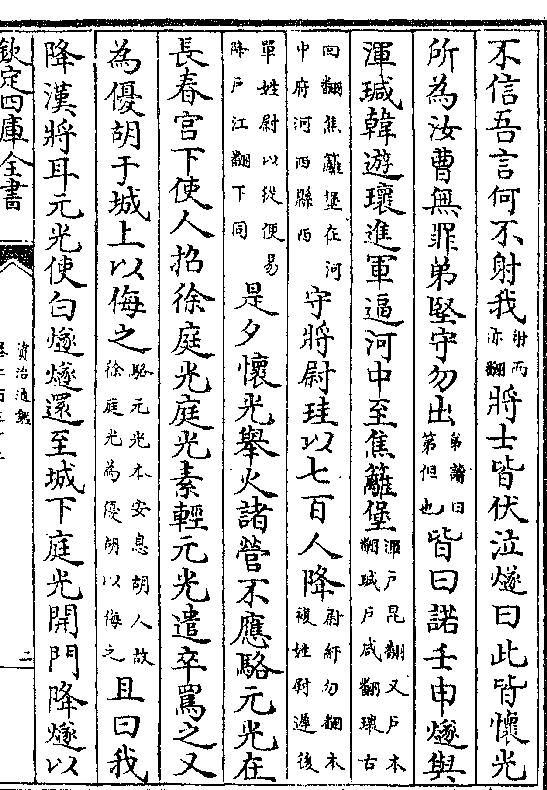 不信吾言何不射我射而亦翻將士皆伏泣燧曰此皆懷光
所為汝曹無罪弟堅守勿出弟讀曰第但也皆曰諾壬申燧與
渾瑊韓遊瓌進軍逼河中至焦籬堡渾戶昆翻又戶本翻瑊戶咸翻瓌古
回翻焦籬堡在河中府河西縣西守將尉珪以七百人降尉紆勿翻本複姓尉遲後
單姓尉以從便易降戶江翻下同是夕懷光舉火諸營不應駱元光在
長春宮下使人招徐庭光庭光素輕元光遣卒罵之又
為優胡于城上以侮之駱元光本安息胡人故徐庭光為優胡以侮之且曰我
降漢將耳元光使白燧燧還至城下庭光開門降燧以
欽定四庫全書
資治通鑑
二